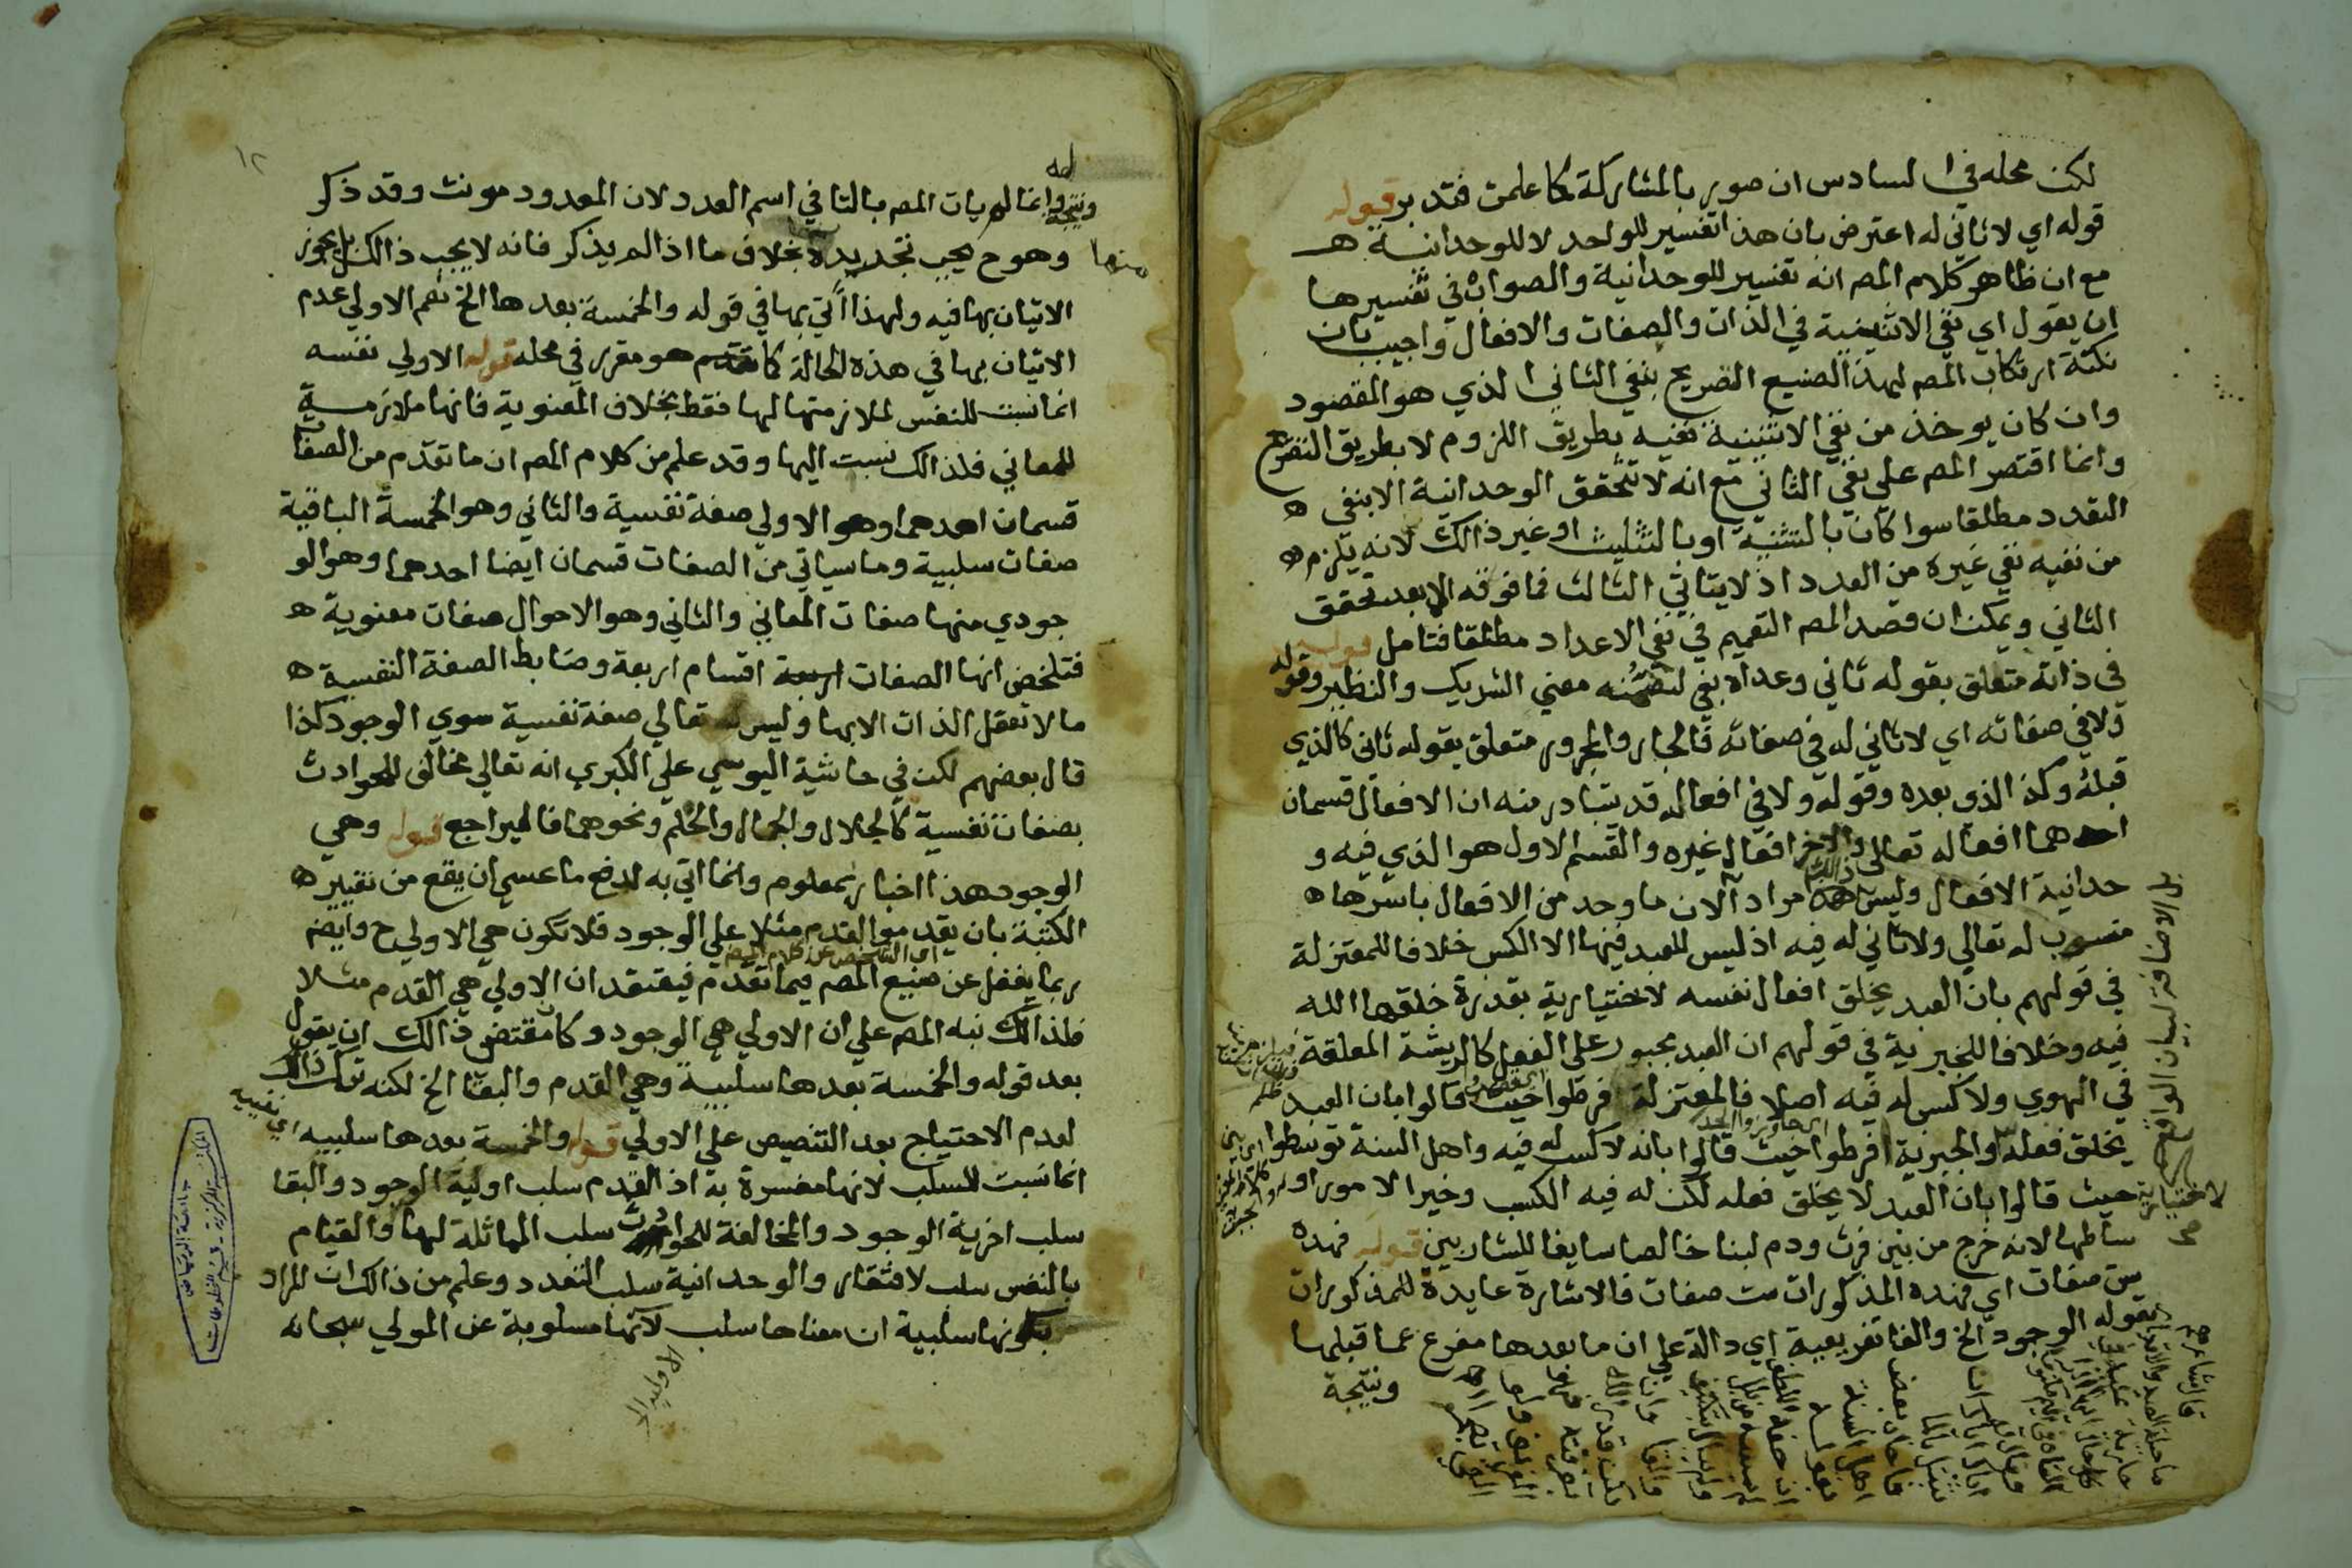 لكن محله في السادس ان صور بالمشاركة كما علمت فتدبر قوله
قوله اي لا ثاني له اعترض بان هذا تفسير للواحد لا للوحدانية ه
مع ان ظاهر كلام المص انه تفسير للوحدانية والصواب في تفسيرها
ان يقول اي نفي الاثنينية في الذات والصفات والافعال واجيب بان
نكتة ارتكاب المص لهذا الصنيع التصريح بنفي الثاني الذي هو المقصود
وان كان يوخذ من نفي الاثنينية نفيه بطريق اللزوم لا بطريق التصريح
وانما اقتصر المص علي نفي الثاني مع انه لا تتحقق الوحدانية الا بنفي ه
التعدد مطلقا سوا كان بالتثنية او بالتثليث او غير ذالك لانه يلزم ه
من نفيه نفي غيره من العدد اذ لا يتاتي الثالث فما فوقه الا بعد تحقق
الثاني ويمكن ان قصد المص التعميم في نفي الاعداد مطلقا فتامل قوله
في ذاته متعلق بقوله ثاني وعداه بفي لتضمنه معني الشريك والنظير وقوله
ولا في صفاته اي لا ثاني له في صفاته فالجار والمجرور متعلق بقوله ثاني كالذي
قبله وكذا الذي بعده وقوله ولا في افعاله قد يتبادر منه ان الافعال قسمان
احدهما افعاله تعالي والاخر افعال غيره والقسم الاول هو الذي فيه و
حدانية الافعال وليس ذالك مرادا لان ما وحد من الافعال باسرها ه
منسوب له تعالي ولا ثاني له فيه اذ ليس للعبد فيها الا الكسب خلافا للمعتزلة
في قولهم بان العبد يخلق افعال نفسه الاختيارية بقدرة خلقها الله
فيه وخلافا للجبرية في قولهم ان العبد مجبور علي الفعل كالريشة المعلقة
في الهوي ولا كسب له فيه اصلا فالمعتزلة فرطوا حيث قالوا بان العبد
يخلق فعله والجبرية افرطوا حيث قالوا بانه لا كسب له فيه واهل السنة توسطوا
حيث قالوا بان العبد لا يخلق فعله لكن له فيه الكسب وخير الامور او
ساطها لانه خرج من بين فرث ودم لبنا خالصا سايغا للشاربين قوله فهذه
ست صفات اي فهذه المذكورات ست صفات فالاشارة عايدة للمذكورات
بقوله الوجود الخ والفا تفريعية اي دالة علي ان ما بعدها مفرع عما قبلها
ونتيجة
١٢
له
ونتيجة وانما لم يات المص بالتا في اسم العدد لان المعدود مونث وقد ذكر
منها
وهو ح يجب تجريده بخلاف ما اذا لم يذكر فانه لا يجب ذالك بل يجوز
الاتيان بها فيه ولهذا اتي بها في قوله والخمسة بعدها الخ نعم الاولي عدم
الاتيان بها في هذه الحالة كما هو مقرر في محله قوله الاولي نفسه
انما نسبت للنفس لملازمتها لها فقط بخلاف المعنوية فانها ملازمة
للمعاني فلذالك نسبت اليها وقد علم من كلام المص ان ما تقدم من الصفات
قسمان احدهما وهو الاولي صفة نفسية والثاني وهو الخمسة الباقية
صفات سلبية وما سياتي من الصفات قسمان ايضا احدهما وهو الو
جودي منها صفات المعاني والثاني وهو الاحوال صفات معنوية ه
فتلخص انها الصفات اربعة اقسام اربعة وضابط الصفة النفسية ه
ما لا تعقل الذات الا بها وليس له تعالي صفة نفسية سوي الوجود كذا
قال بعضهم لكن في حاشية اليوسي علي الكبري انه تعالي مخالف للحوادث
بصفات نفسية كالجلال والجمال والحلم ونحوهما فاليراجع قوله وهي
الوجود هذا اخبار بمعلوم وانما اتي به لدفع ما عسي ان يقع من تغيير ه
الكتبة بان يقدموا القدم مثلا علي الوجود فلا تكون هي الاولي ح وايضم
اي الشخص عن كلام المص
ربما يغفل عن صنيع المص فيما تقدم فيعتقد ان الاولي هي القدم مثلا
فلذالك نبه المص علي ان الاولي هي الوجود وكان مقتضي ذالك ان يقول
بعد قوله والخمسة بعدها سلبية وهي القدم والبقا الخ لكنه ترك ذالك
لعدم الاحتياج بعد التنصيص علي الاولي قوله والخمسة بعدها سلبيه
انما نسبت للسلب لانها مفسرة به اذ القدم سلب اولية الوجود والبقا
سلب اخرية الوجود والمخالفة للحوادث سلب المماثلة لها والقيام
بالنفس سلب الافتقار والوحدانية سلب التعدد وعلم من ذالك ان المراد
بكونها سلبية ان معناها سلب لا انها مسلوبة عن المولي سبحانه